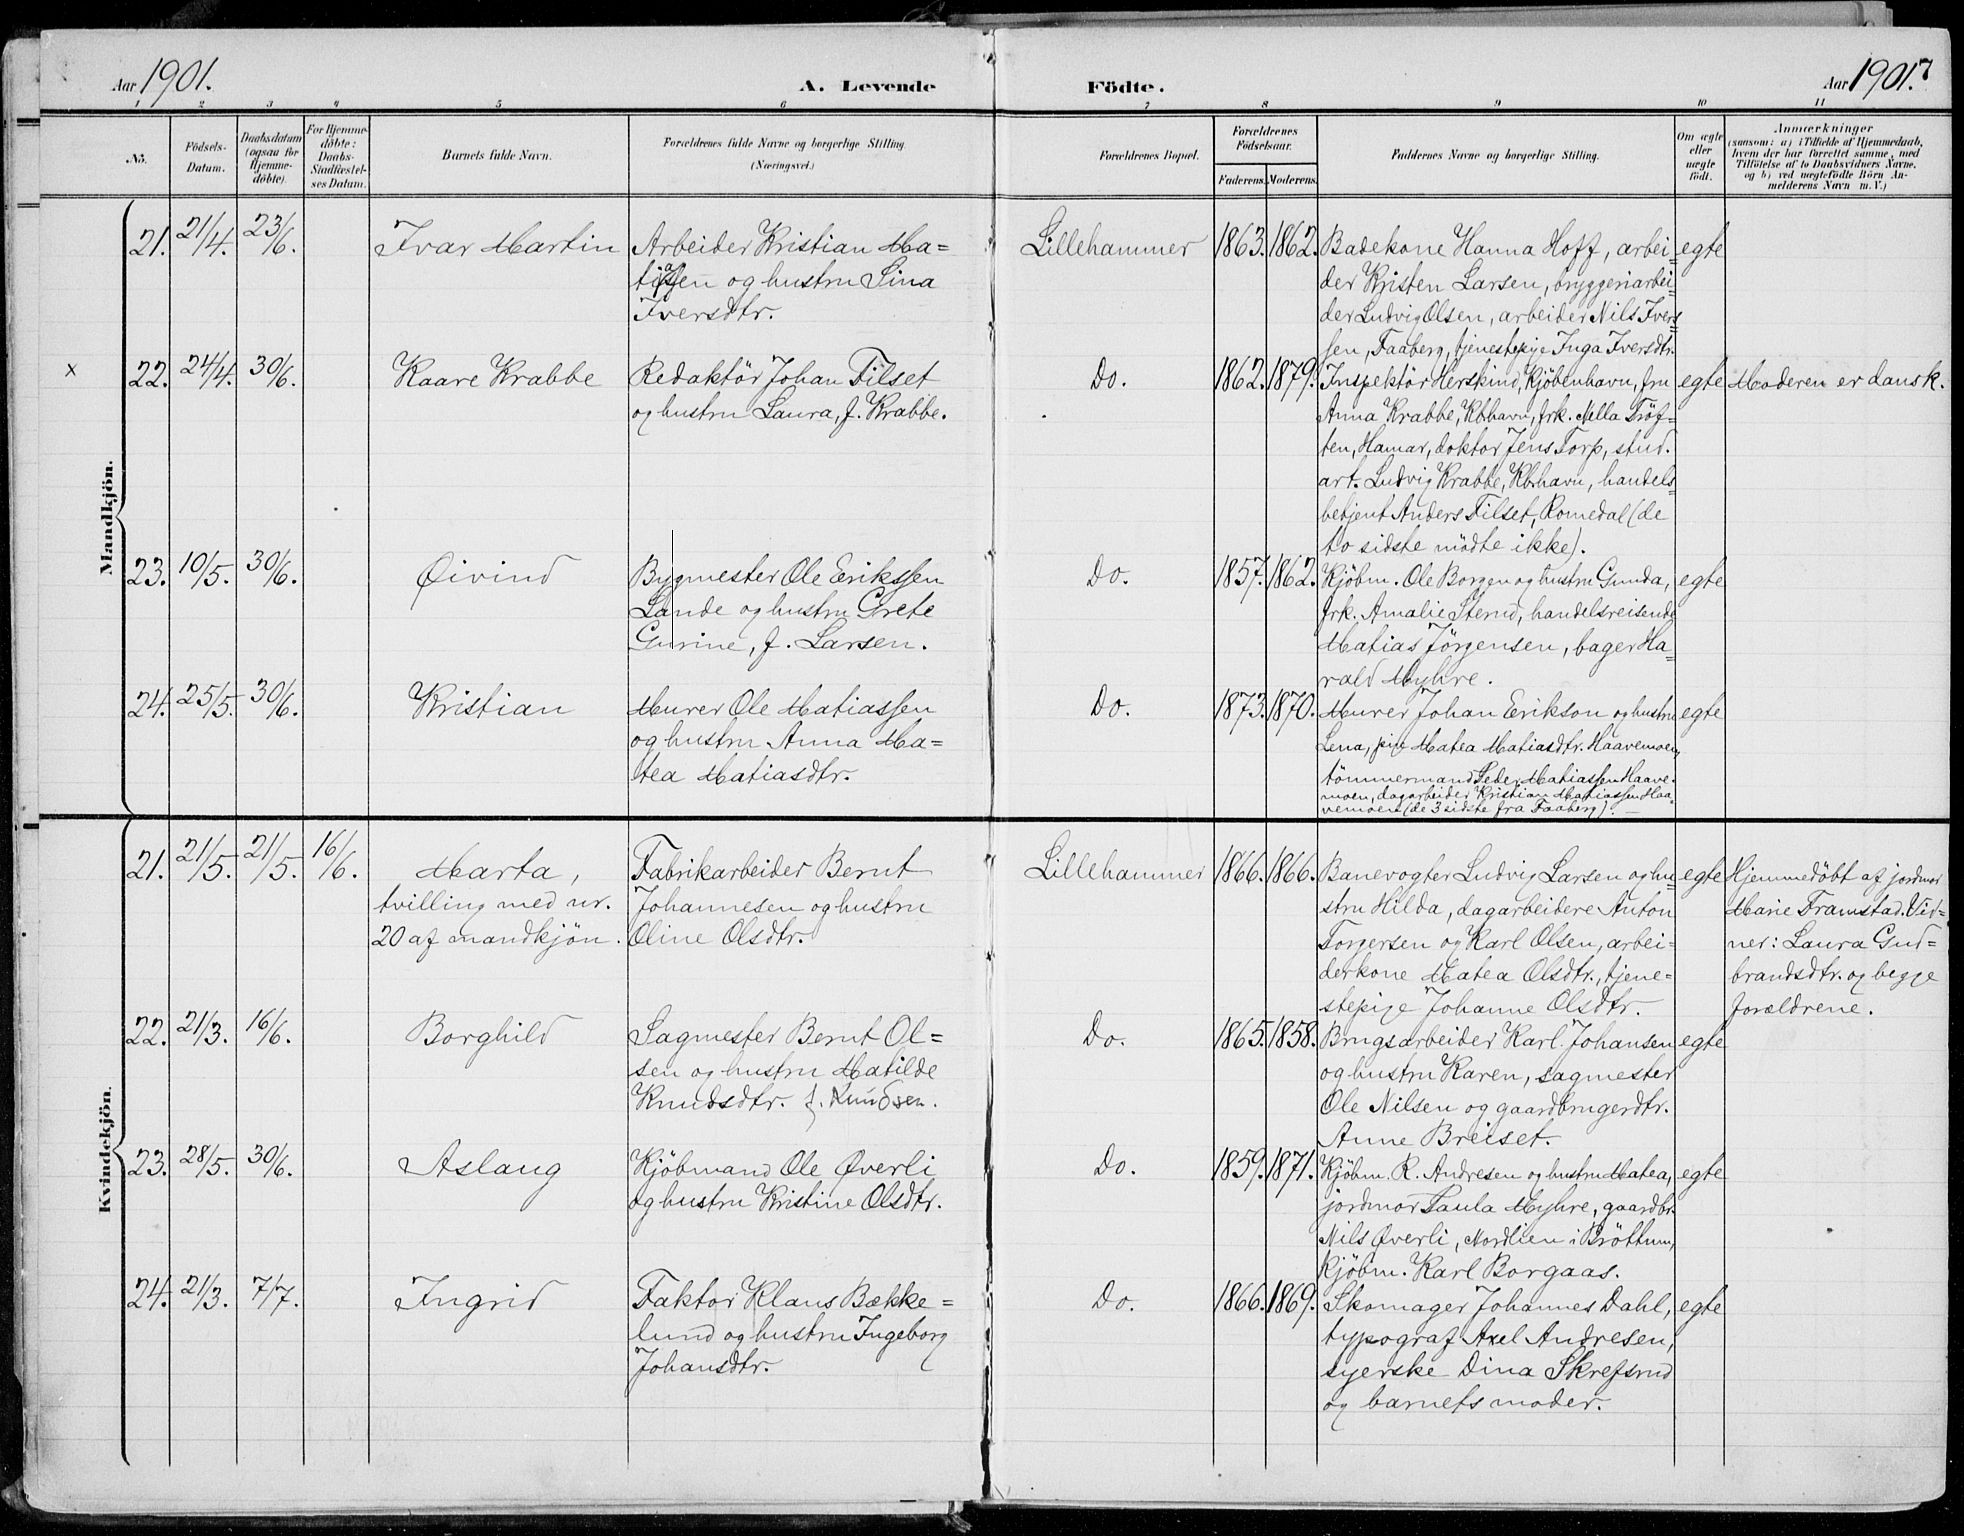 Aar 1901.
A. Levende Födte.
Aar 1901. 7
1 2 3 4 5 6 7 8 9 10 11
No.
Födsels-Datum.
Daabsdatum (ogsaa for Hjemme-döbte).
For Hjemme-döbte: Daabs-Stadfæstel-ses Datum.
Barnets fulde Navn.
Forældrenes fulde Navne og borgerlige Stilling.
(Næringsvei.)
Forældrenes Bopæl.
Forældrenes Födselsaar.
Faderens. Moderens.
Faddernes Navne og borgerlige Stilling.
Om ægte eller uægte födt.
Anmærkninger
(saasom: a) i Tilfælde af Hjemmedaab,
hvem der har forrettet samme, med
Tilföielse af to Daabsvidners Navne.
og b) ved uægtefödte Börn An-
melderens Navn m. V.)
Mandkjön.
21. 21/4. 23/6. Ivar Martin
Arbeider Kristian Ma=
tiasen og hustru Sina
Iversdtr.
Lillehammer 1863. 1862.
Badekone Hanna Hoff, arbei=
der Kristen Larsen, bryggeriarbei=
der Ludvig Olsen, arbeider Nils Ivers=
sen, Faaberg, tjenestepige Inga Iversdtr.
egte
x 22. 24/4. 30/6. Kaare Krabbe
Redaktör Johan Filset
og hustru Laura, f. Krabbe.
Do. 1862. 1879.
Inspektör Herskind, Kjöbenhavn, fru
Anna Krabbe, Kbhavn, frk. Nella Tröf=
ten, Hamar, doktor Jens Torp, stud.
art. Ludvig Krabbe, Kbhavn, handels=
betjent Anders Filset, Romedal (de
to sidste mödte ikke).
egte Moderen er dansk.
23. 10/5. 30/6. Øivind
Bygmester Ole Erikssen
Lande og hustru Grete
Gurine, f. Larsen.
Do. 1857. 1862.
Kjöbm. Ole Borgen og hustru Gunda,
frk. Amalie Sterud, handelsreisende
Matias Jörgensen, bager Ha=
rald Myhre.
egte
24. 25/5. 30/6. Kristian
Murer Ole Matiassen
og hustru Anna Ma=
tea Matiasdtr.
Do. 1873. 1870.
Murer Johan Erikson og hustru
Lena, pige Matea Matiasdtr. Haavemoen,
tömmermand Peder Matiassen Haave=
moen, dagarbeider Kristian Matiassen Haa=
vemoen (de 3 sidste fra Faaberg). —
egte
Kvindekjön.
21. 21/5. 21/5. 16/6. Marta,
tvilling med nr.
20 af mandkjön.
Fabrikarbeider Bernt
Johannesen og hustru
Oline Olsdtr.
Lillehammer 1866. 1866.
Banevogter Ludvig Larsen og hu=
stru Hilda, dagarbeidere Anton
Torgersen og Karl Olsen, arbei=
derkone Matea Olsdtr., tjene=
stepige Johanne Olsdtr.
egte
Hjemmedöbt af jordmor
Marie Framstad. Vid=
ner: Laura Gud=
brandsdtr. og begge
forældrene.
22. 21/3. 16/6. Borghild
Sagmester Bernt Ol=
sen og hustru Matilde
Knudsdtr. f. Knudsen.
Do. 1865. 1858.
Brugsarbeider Karl Johansen
og hustru Karen, sagmester
Ole Nilsen og gaardbrugerdtr.
Anne Breiset.
egte
23. 28/5. 30/6. Aslaug
Kjöbmand Ole Øverli
og hustru Kristine Olsdtr.
Do. 1859. 1871.
Kjöbm. R. Andresen og hustru Matea,
jordmor Paula Myhre, gaardbr.
Nils Øverli, Nordlien i Bröttum,
Kjöbm. Karl Borgaas.
egte
24. 21/3. 7/7. Ingrid
Faktor Klaus Bække=
lund og hustru Ingeborg
Johansdtr.
Do. 1866. 1869.
Skomager Johannes Dahl,
typograf Axel Andresen,
syerske Dina Skrefsrud
og barnets moder.
egte